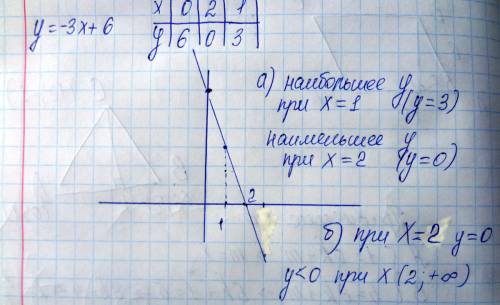 y=-3x+6
x | 0 | 2 | 1 |
y | 6 | 0 | 3 |
а) наибольшее y
при x=1 (y=3)
наименьшее y
при x=2 (y=0)
2
1
б) при x=2 y=0
y<0 при x (2;+∞)